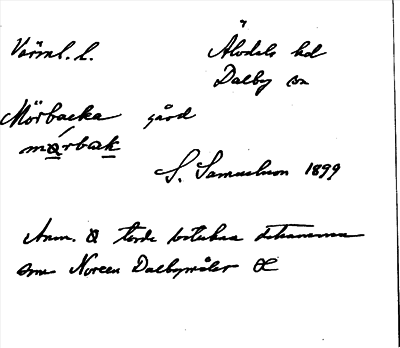 Värml. l. Älvdals hd
Dalby sn
Mörbacka gård
mǿrbak
S. Samuelsson 1899
Anm. torde beteckna detsamma
som Noreen Dalbymålet Œ